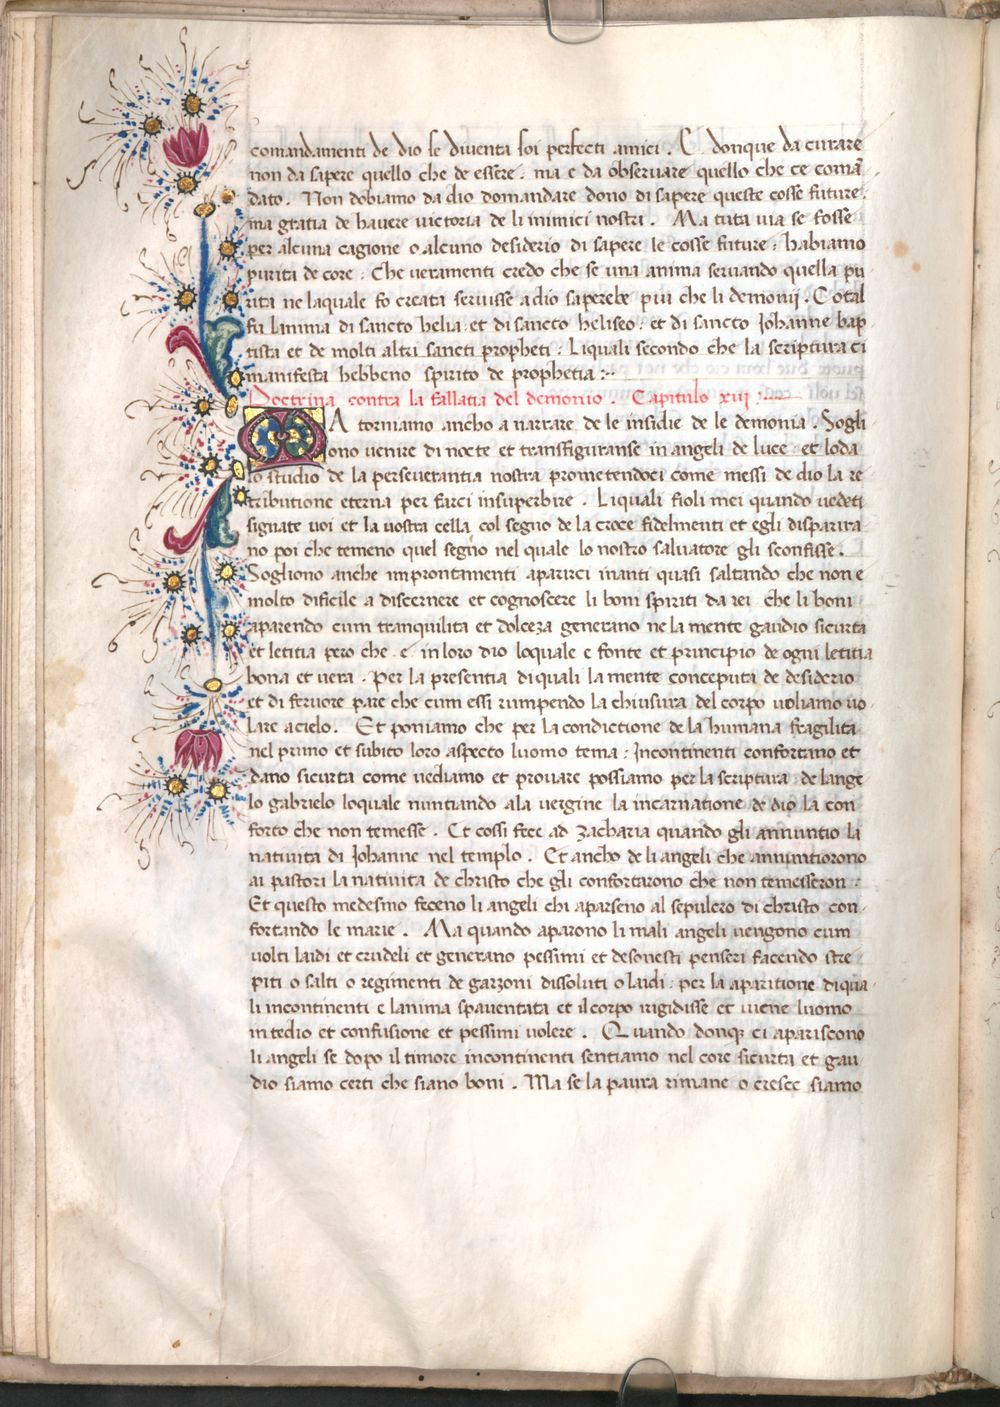 comandamenti de dio se diventa soi perfecti amici . E donque da curare
non da sapere quello che de essere . ma e da observare quello che ce comã
dato . Non dobiamo da dio domandare dono di sapere queste cosse future .
ma gratia de havere victoria de li inimici nostri . Ma tuta via se fosse
per alcuna cagione o alcuno desiderio di sapere le cosse future : habiamo
purita de core : Che veramenti credo che se una anima servando quella pu
rita ne laquale fo creata servisse a dio saperebe piu che li demonij . Cotal
fu lanima di sancto helia : et di sancto heliseo : et di sancto Johanne bap
tista et de molti altri sancti propheti : Liquali secondo che la scriptura ci
manifesta hebbeno spirito de prophetia :
Doctrina contra la fallatia del demonio . Capitulo xiij :
MA torniamo ancho a narrare de le insidie de le demonia . Sogli
ono venire di nocte et transfiguranse in angeli de luce : et loda
lo studio de la perseverantia nostra prometendoci come messi de dio la re
tributione eterna per farci insuperbire . Liquali fioli mei quando vedeti
signate voi et la vostra cella col segno de la croce fidelmenti et egli disparira
no poi che temeno quel segno nel quale lo nostro salvatore gli sconfisse .
Sogliono anche improntamenti aparirci inanti quasi saltando che non e
molto dificile a discernere et cognoscere li boni spiriti da rei che li boni
aparendo cum tranquilita et dolceza generano ne la mente gaudio sicurta
et letitia pero che . e . in loro dio loquale e fonte et principio de ogni letitia
bona et vera . Per la presentia di quali la mente conceputa de desiderio
et di fervore pare che cum essi rumpendo la chiusura del corpo voliamo vo
lare a cielo . Et poniamo che per la condictione de la humana fragilita
nel primo et subito loro aspecto luomo tema : Incontinenti confortano et
dano sicurta come vediamo et provare possiamo per la scriptura : de lange
lo gabrielo loquale nuntiando ala vergine la incarnatione de dio la con
forto che non temesse . Et cossi fece ad Zacharia quando gli annuntio la
nativita di Johanne nel templo . Et ancho de li angeli che annuntiorono
ai pastori la nativita de christo che gli confortarono che non temesseron :
Et questo medesmo feceno li angeli chi aparseno al sepulcro di christo con
fortando le marie . Ma quando aparono li mali angeli vengono cum
volti laidi et crudeli et generano pessimi et desonesti penseri facendo stre
piti o salti o regimenti de garzoni dissoluti o laidi : per la aparitione di qua
li incontinenti e lanima spaventata et il corpo irigidisse et viene luomo
in tedio et confusione et pessimi volere . Quando donq; ci apariscono
li angeli se dopo il timore incontinenti sentiamo nel core sicurta et gau
dio siamo certi che siano boni . Ma se la paura rimane o cresce siamo